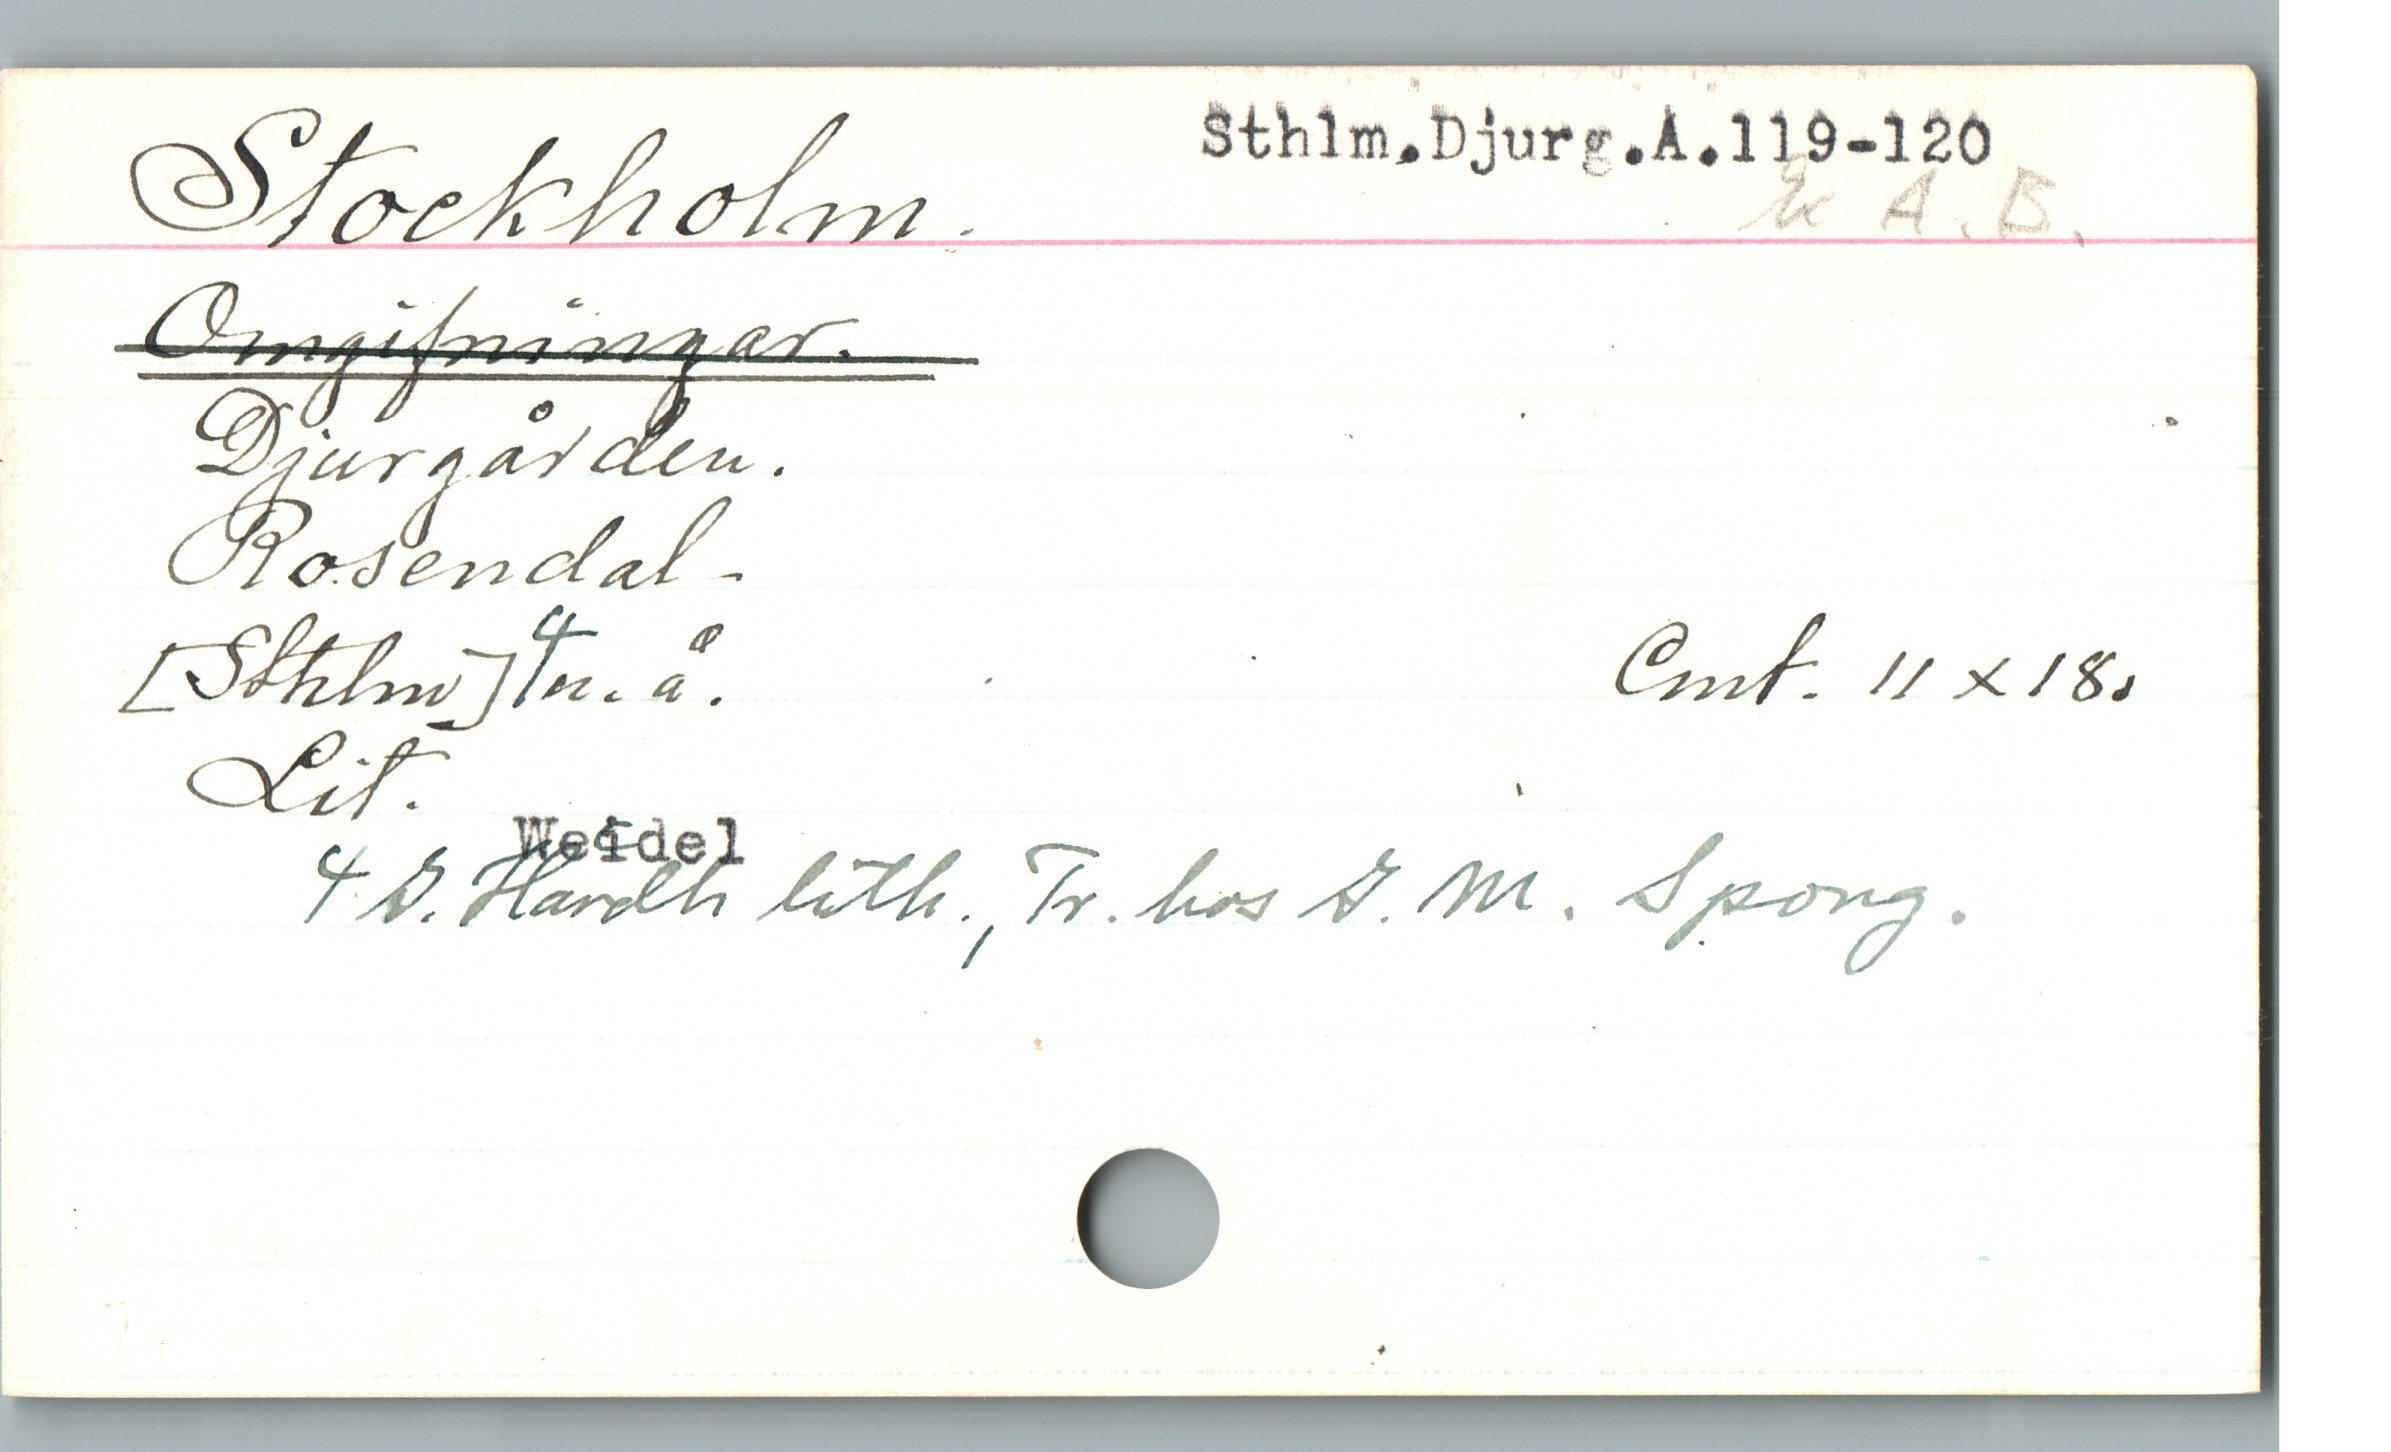 Sthlm.Djurg.A.119-120
Stockholm.
Ex A. B.
Omgifningar.
Djurgården.
Rosendal-
[Sthlm] 4 n. å.
Cmt. 11 x 18.
Lit.
Weidel
4 G. Hardh lith., Tr. hos G. M. Spong.